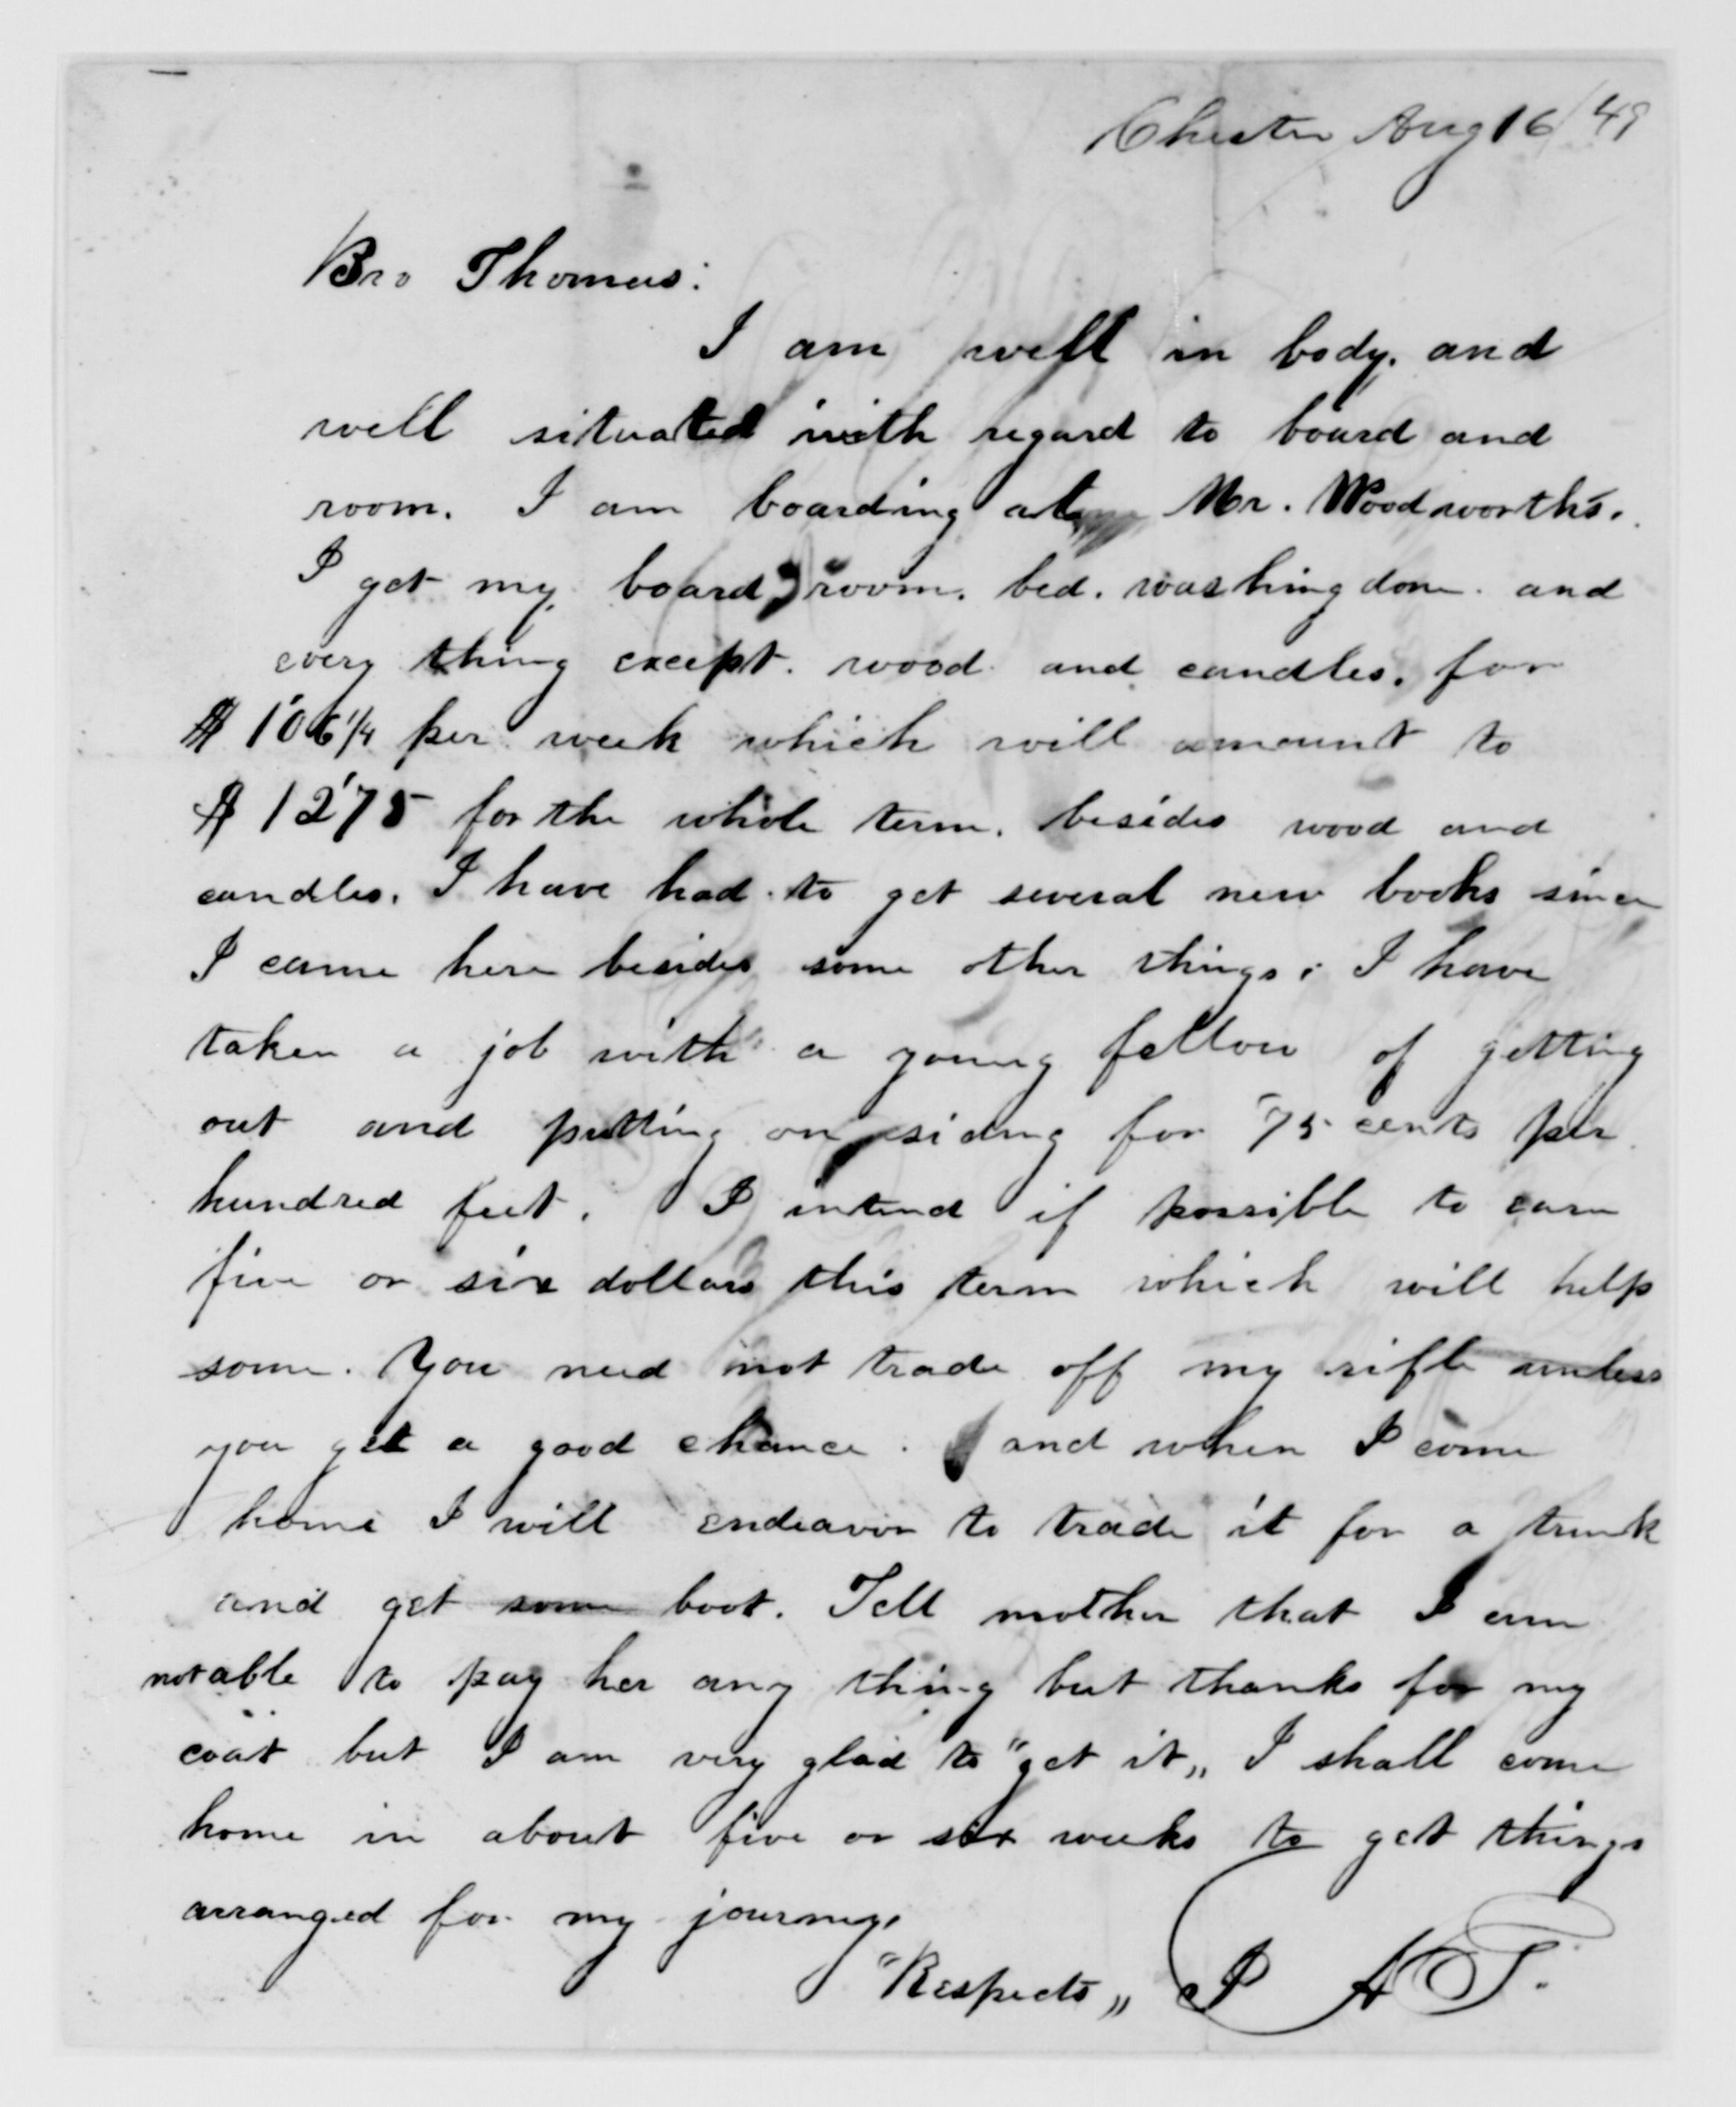 Chester Aug 16/49
Bro Thomas:
I am well in body. and
well situated with regard to board and
room. I am boarding at Mr. Woodworth's.
I get my board, room. bed. washing done. and
every thing except. wood and candles. for
$ 1'06 1/4 per week which will amount to
$ 12'75 for the whole term. besides wood and
candles. I have had to get several new books since
I came here besides some other things: I have
taken a job with a young fellow of getting
out and putting on siding for 75 cents per
hundred feet. I intend if possible to earn
five or six dollars this term which will help
some. You need not trade off my rifle unless
you get a good chance. and when I come
home I will endeavor to trade it for a trunk
and get some boot. Tell mother that I am
not able to pay her any thing but thanks for my
coat but I am very glad to "get it„ I shall come
home in about five or six weeks to get things
arranged for my journey.
"Respects„ J A G.